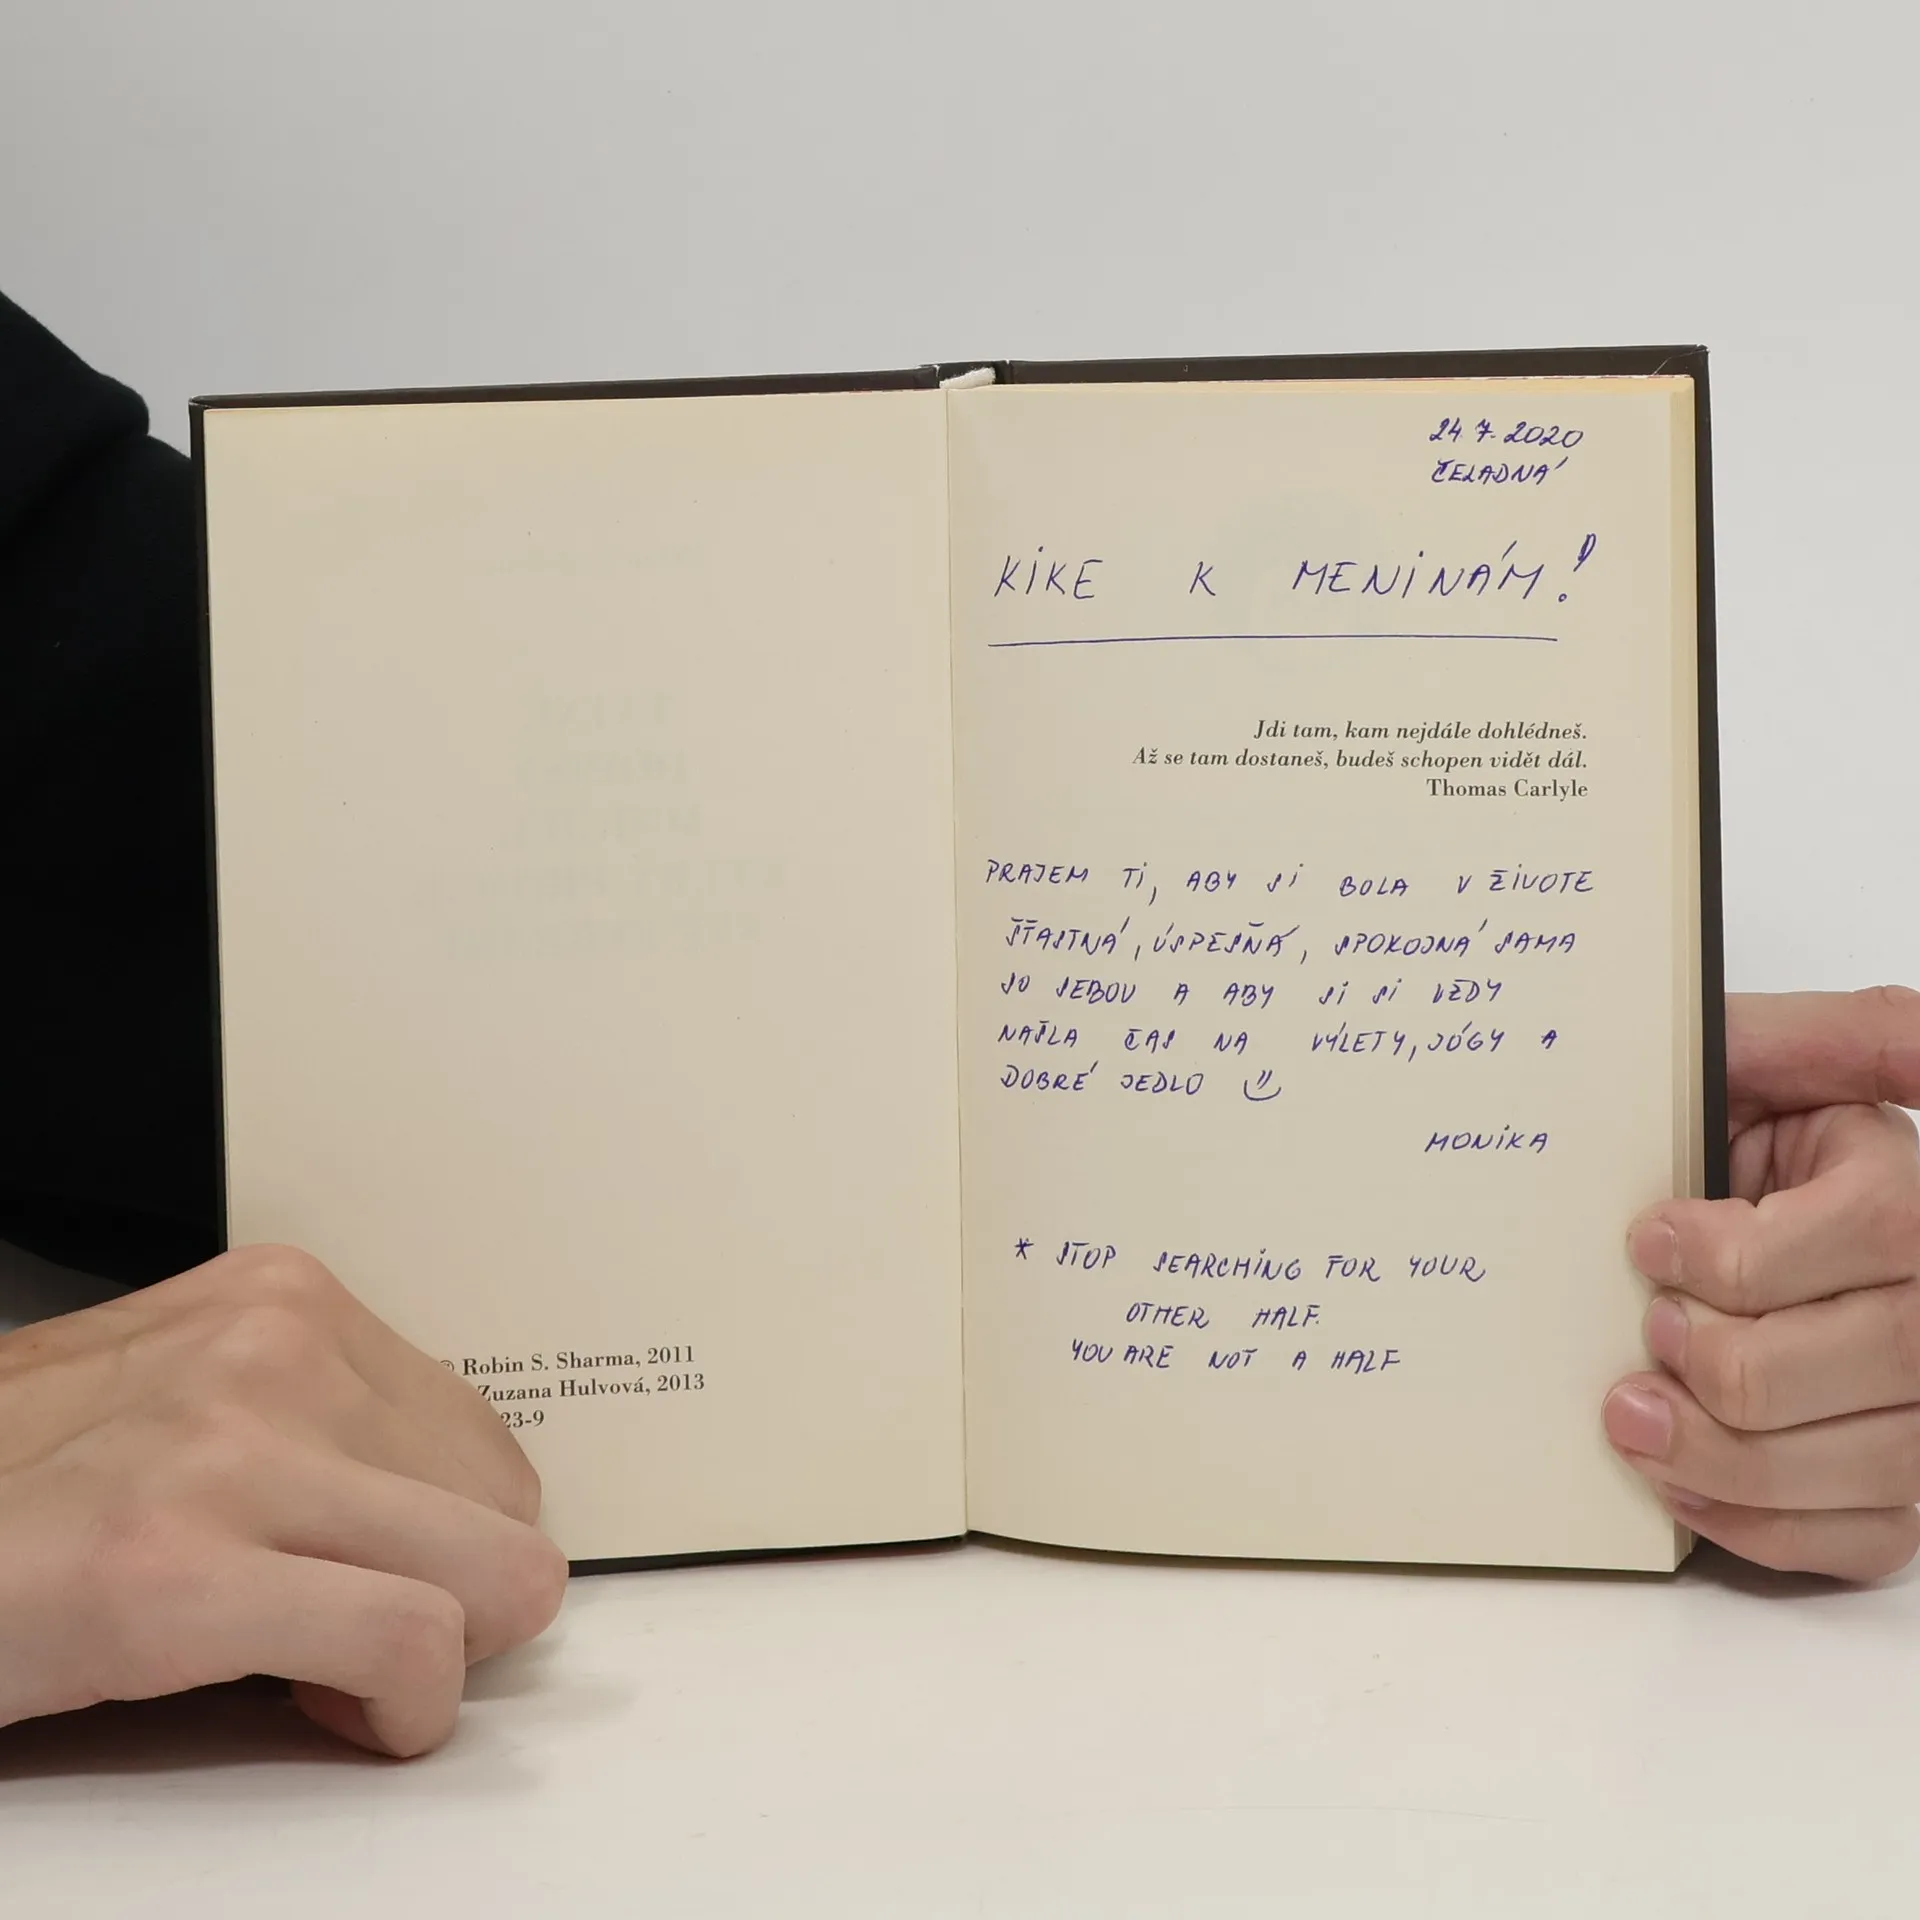 © Robin S. Sharma, 2011
Zuzana Hulvová, 2013
23-9
24.7.2020
ČELADNÁ
KIKE K MENINÁM!
Jdi tam, kam nejdále dohlédneš.
Až se tam dostaneš, budeš schopen vidět dál.
Thomas Carlyle
PRAJEM TI, ABY SI BOLA V ŽIVOTE
ŠŤASTNÁ, ÚSPEŠŇÁ, SPOKOJNÁ SAMA
SO SEBOU A ABY SI SI VŽDY
NAŠLA ČAS NA VÝLETY, JÓGY A
DOBRÉ JEDLO
MONIKA
* STOP SEARCHING FOR YOUR
OTHER HALF.
YOU ARE NOT A HALF